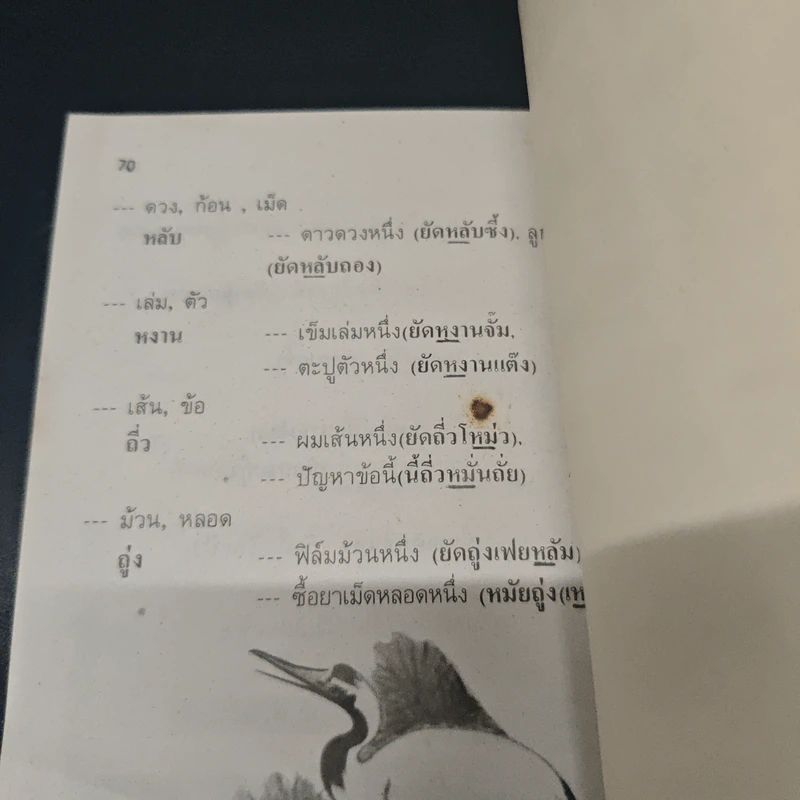 70
--- ดวง, ก้อน , เม็ด
หลับ --- ดาวดวงหนึ่ง (ยัดหลับซิ้ง),
(ยัดหลับถอง)
--- เล่ม, ตัว
หงาน --- เข็มเล่มหนึ่ง(ยัดหงานจั๊ม,
--- ตะปูตัวหนึ่ง (ยัดหงานแต๊ง)
--- เส้น, ข้อ
ถี่ว --- ผมเส้นหนึ่ง(ยัดถี่วโหม่ว),
--- ปัญหาข้อนี้(นี้ถี่วหมั่นถั่ย)
--- ม้วน, หลอด
ถู่ง --- ฟิล์มม้วนหนึ่ง (ยัดถู่งเฟยหลัม)
--- ซื้อยาเม็ดหลอดหนึ่ง (หมัยถู่ง